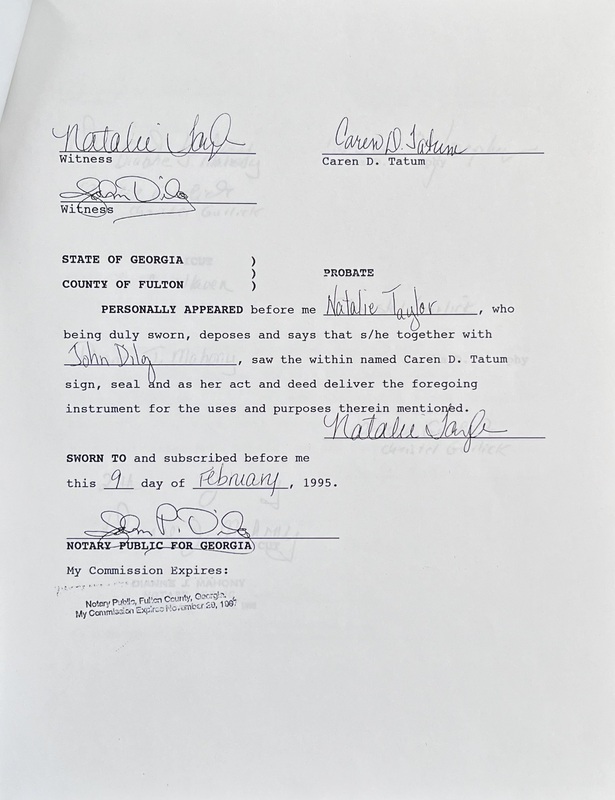 Natalie Taylor
Caren D. Tatum
Witness
Caren D. Tatum
John Dilg
Witness
STATE OF GEORGIA )
)
PROBATE
COUNTY OF FULTON )
PERSONALLY APPEARED before me Natalie Taylor, who
being duly sworn, deposes and says that s/he together with
John Dilg, saw the within named Caren D. Tatum
sign, seal and as her act and deed deliver the foregoing
instrument for the uses and purposes therein mentioned.
Natalie Taylor
SWORN TO and subscribed before me
this 9 day of February, 1995.
John P. Dilg
NOTARY PUBLIC FOR GEORGIA
My Commission Expires:
Notary Public, Fulton County, Georgia.
My Commission Expires November 20, 1997